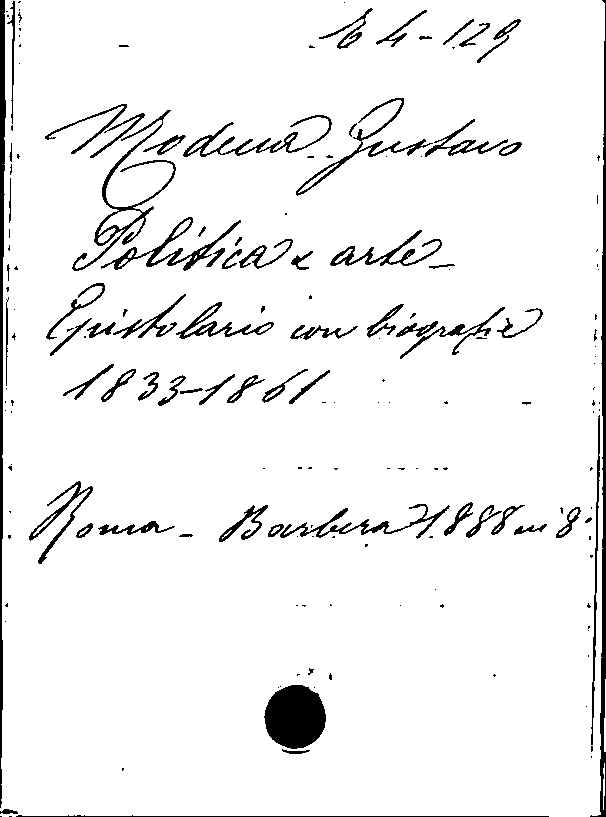 E 4-129
Modena Gustavo
Politica e arte -
Epistolario con biografie
1833-1861
Roma - Barbera 1888 in 8°